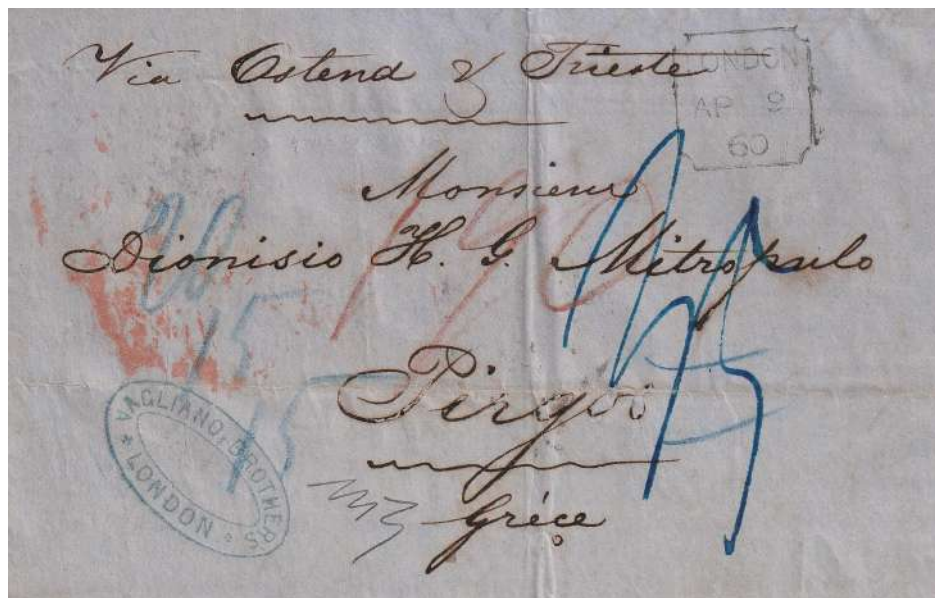 Via Ostend & Trieste
LONDON
AP 9
60
Monsieur
Dionisio H. G. Mitropulo
190
15
15
Pirgos
Grèce
VAGLIANO, BROTHERS
* LONDON *